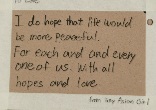 I do hope that life would
be more peaceful.
For each and and every
one of us. With all
hopes and love
from